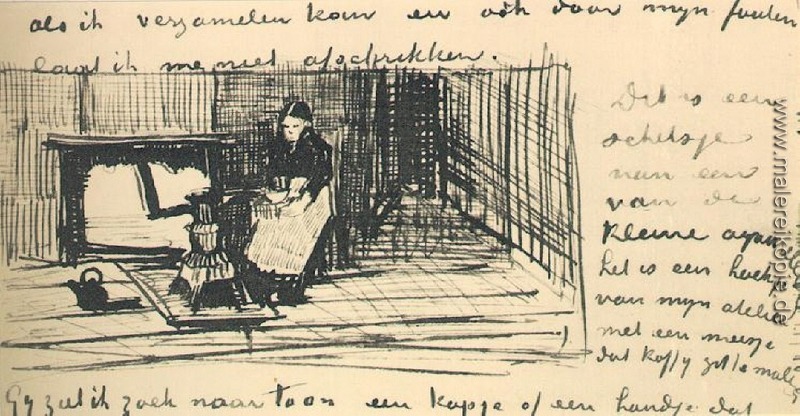 als ik verzamelen kan en ook door mijn fouten
laat ik me niet afschrikken.
Dit is een
schetsje
van een
van de
kleine aqua
het is een hoek
van mijn atelie
met een meisje
dat koffy zit te male
Gy ziet ik zoek naar toon een kopje of een handje dat
www.malereikopie.de